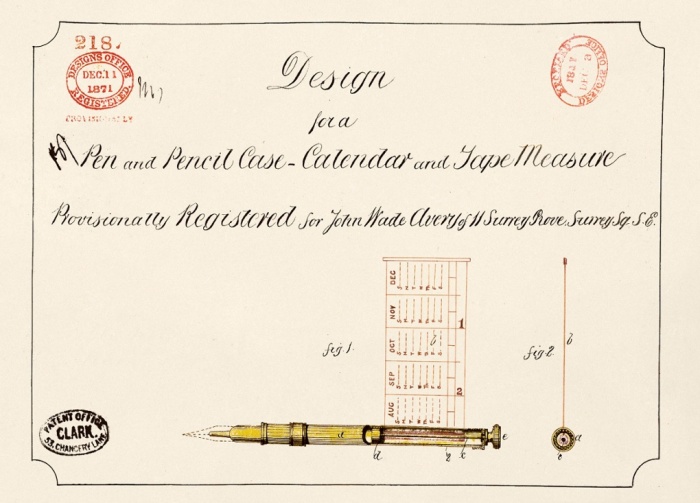 218.
DESIGNS OFFICE
DEC. 11
1871
REGISTERED.
PROVISIONALLY
Design
for a
Pen and Pencil Case - Calendar and Tape Measure
Provisionally Registered for John Wade Avery of 11 Surrey Grove, Surrey Sq. S.E.
DEC
NOV
OCT
SEP
AUG
S M T W Th F S
1
2
b
fig. 1.
fig. 2
b
a
d
b
c
e
a
c
PATENT OFFICE
CLARK.
53, CHANCERY LANE